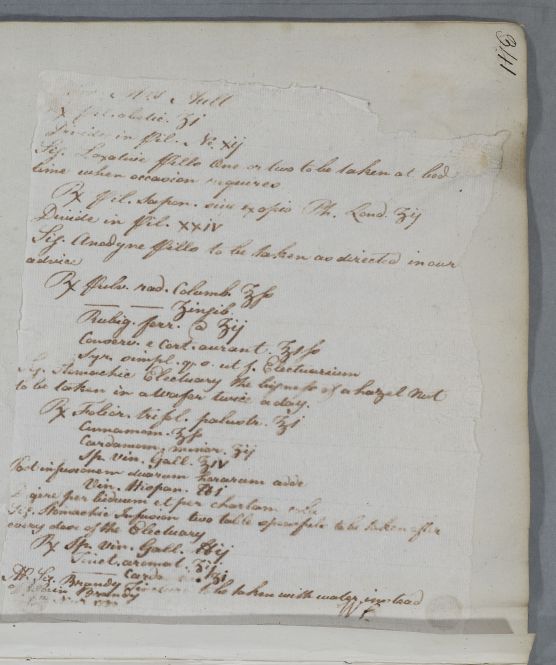 341
Mrs Aull
℞ Pil. ʒj
Divide in Pil. No. xij
Sig. Laxative Pills One or two to be taken at bed
time when occasion requires
℞ Pil. Sapon. sive ex opio Ph. Lond. ʒij
Divide in Pil. XXIV
Sig. Anodyne Pills to be taken as directed in our
advice
℞ Pulv. rad. Columb. ʒß
— — Zingib.
Rubig. ferr. @ ʒij
Conserv. e Cort. aurant. ʒißß
Syr. simpl. q. s. ut f. Electuarium
Sig. Stomachic Electuary the bigness of a hazel nut
to be taken in a wafer twice a day.
℞ Foliar. trifol. palustr. ʒj
Cinnamom. ʒß
Cardamom. minor. ʒij
Sp. vin. Gall. ʒIV
Post infusionem duarum horarum adde
Vin. Hispan. ℔j
Digere per biduum et per chartam
Sig. Stomachic Infusion two table spoonfuls to be taken after
every dose of the Electuary
℞ Sp. vin. Gall. ℔ij
Tinct. aromat. ʒij
— Card
Sig. Brandy to be taken with water instead
Brandy